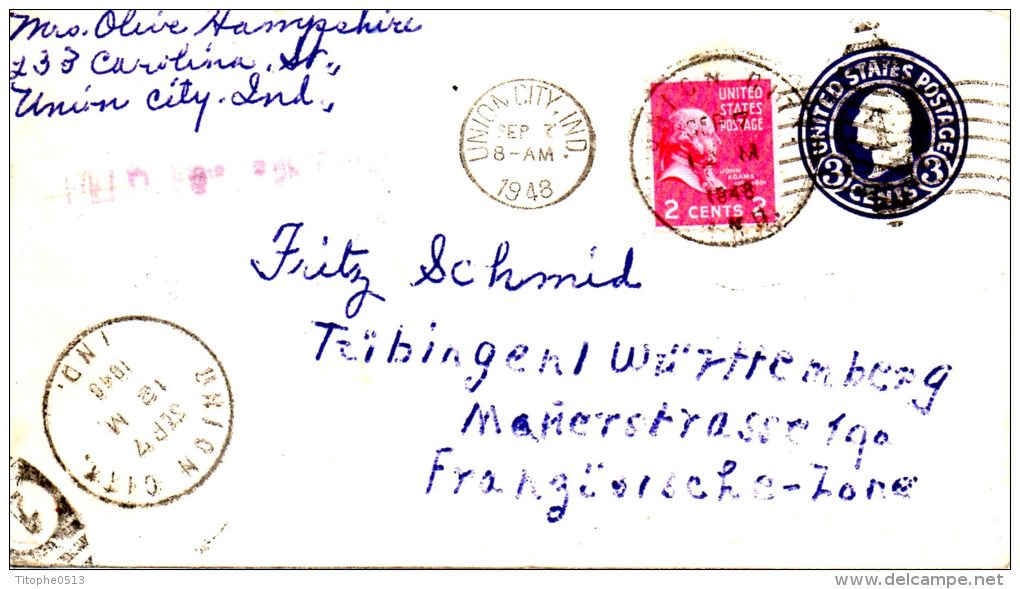 Mrs. Olive Hampshire
233 Carolina. St.,
Union City. Ind.,
UNION CITY, IND.
SEP 7
8-AM
1948
UNITED
STATES
POSTAGE
JOHN
ADAMS
2 CENTS 2
SEP 7
12 M
1948
UNITED STATES POSTAGE
3 CENTS 3
Fritz Schmid
Tübingen/Württemberg
Französische-Zone
UNION CITY,
SEP 7
12 M
1948
IND.
Titophe0513
delcampe.net